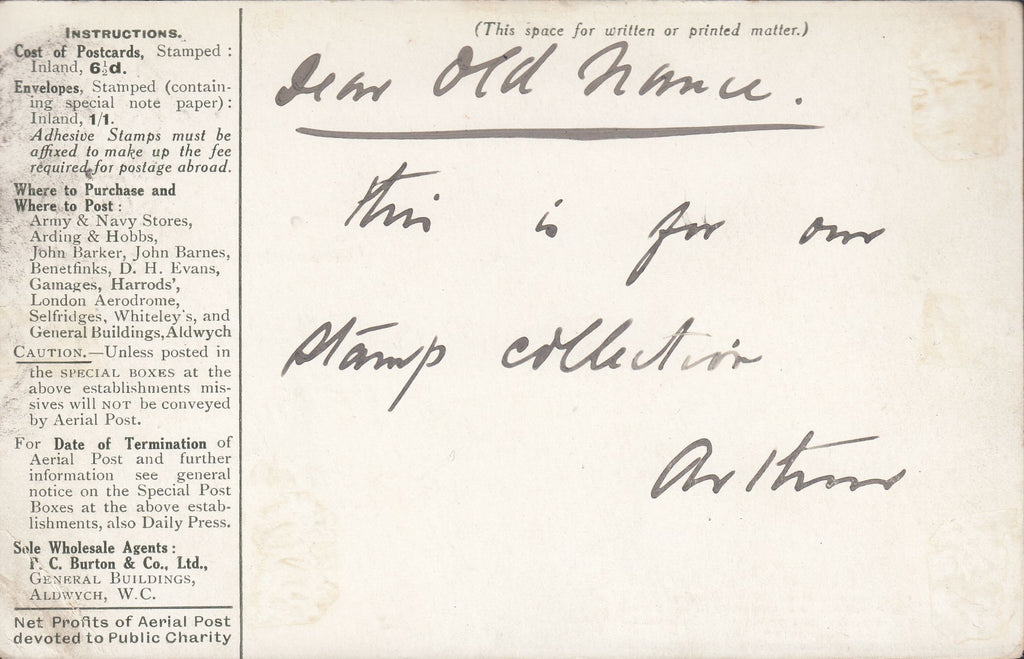 INSTRUCTIONS.
Cost of Postcards, Stamped :
Inland, 6½d.
Envelopes, Stamped (contain-
ing special note paper) :
Inland, 1/1.
Adhesive Stamps must be
affixed to make up the fee
required for postage abroad.
Where to Purchase and
Where to Post :
Army & Navy Stores,
Arding & Hobbs,
John Barker, John Barnes,
Benetfinks, D. H. Evans,
Gamages, Harrods',
London Aerodrome,
Selfridges, Whiteley's, and
General Buildings, Aldwych
CAUTION.—Unless posted in
the SPECIAL BOXES at the
above establishments mis-
sives will NOT be conveyed
by Aerial Post.
For Date of Termination of
Aerial Post and further
information see general
notice on the Special Post
Boxes at the above estab-
lishments, also Daily Press.
Sole Wholesale Agents :
F. C. Burton & Co., Ltd.,
GENERAL BUILDINGS,
ALDWYCH, W.C.
Net Profits of Aerial Post
devoted to Public Charity
(This space for written or printed matter.)
Dear Old Nance.
this is for our
stamp collection
Arthur